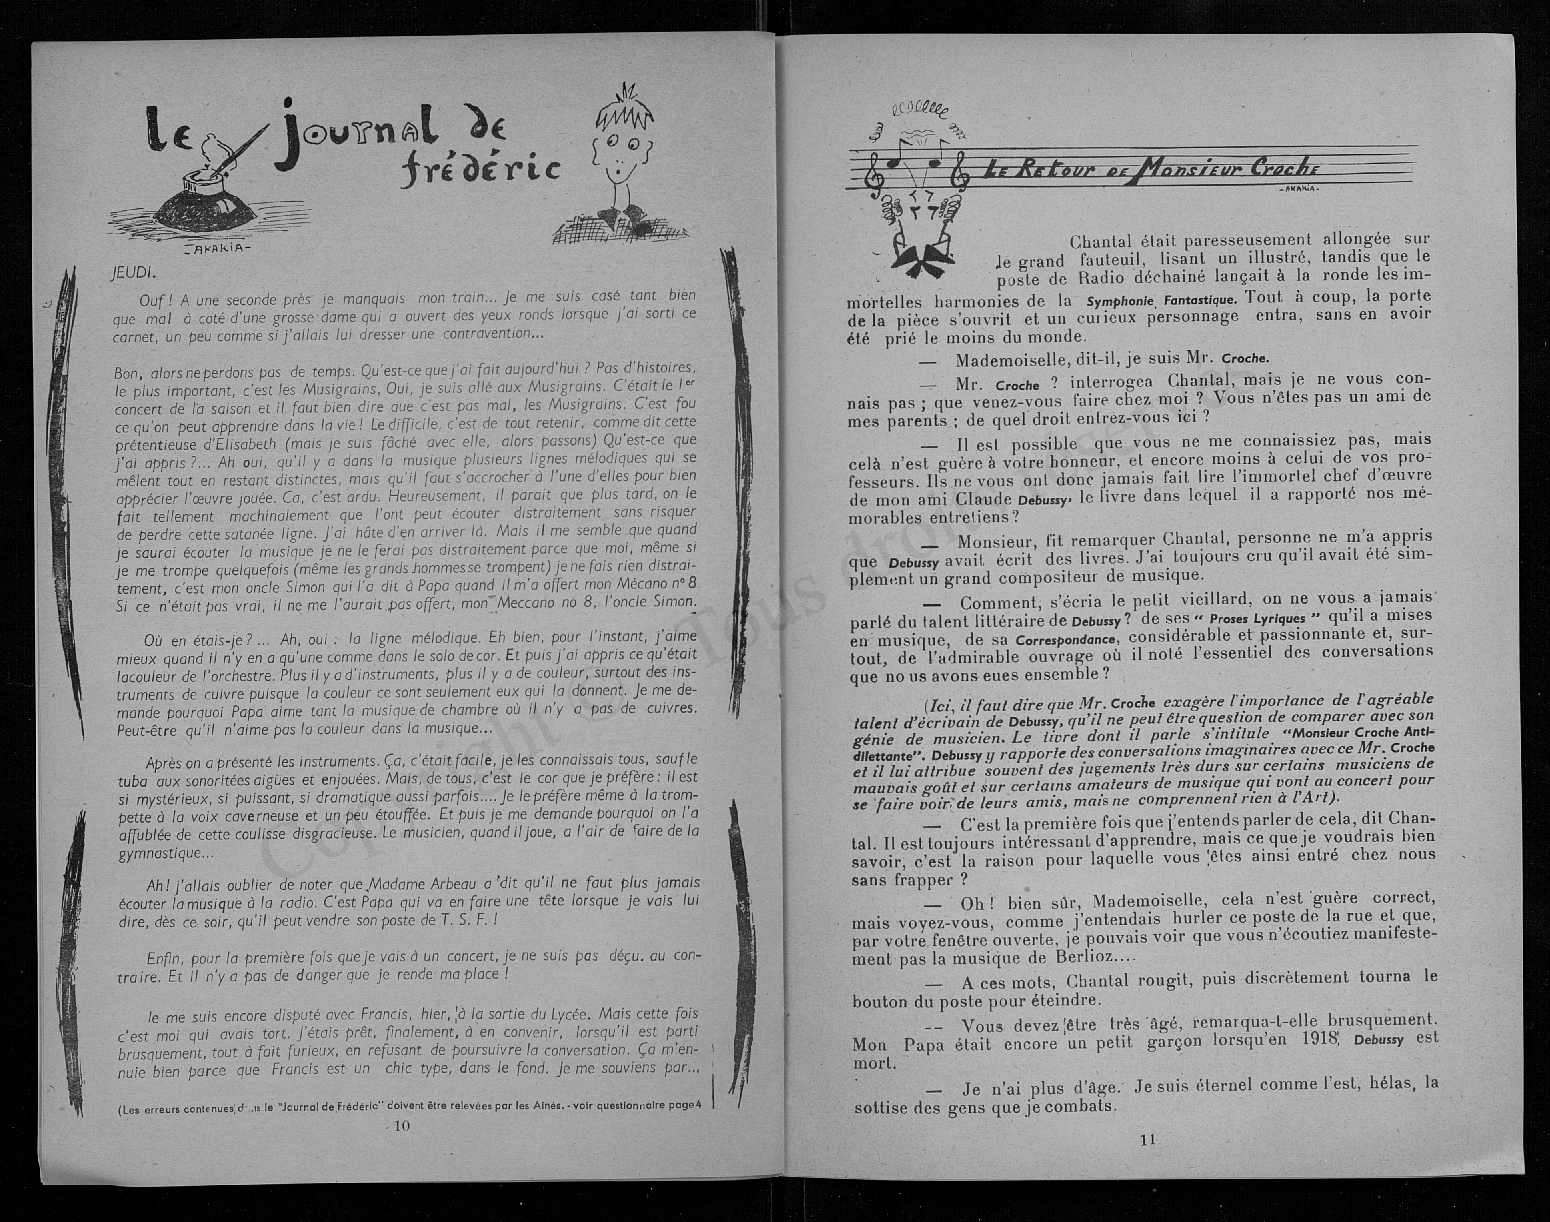 Le Journal de
frédéric
-AKAKIA-
JEUDI.
Ouf ! A une seconde près je manquais mon train... Je me suis casé tant bien
que mal à coté d'une grosse dame qui a ouvert des yeux ronds lorsque j'ai sorti ce
carnet, un peu comme si j'allais lui dresser une contravention...
Bon, alors ne perdons pas de temps. Qu'est-ce que j'ai fait aujourd'hui ? Pas d'histoires,
le plus important, c'est les Musigrains, Oui, je suis allé aux Musigrains. C'était le 1er
concert de la saison et il faut bien dire que c'est pas mal, les Musigrains. C'est fou
ce qu'on peut apprendre dans la vie ! Le difficile, c'est de tout retenir, comme dit cette
prétentieuse d'Elisabeth (mais je suis fâché avec elle, alors passons) Qu'est-ce que
j'ai appris ?... Ah oui, qu'il y a dans la musique plusieurs lignes mélodiques qui se
mêlent tout en restant distinctes, mais qu'il faut s'accrocher à l'une d'elles pour bien
apprécier l'œuvre jouée. Ca, c'est ardu. Heureusement, il parait que plus tard, on le
fait tellement machinalement que l'ont peut écouter distraitement sans risquer
de perdre cette satanée ligne. J'ai hâte d'en arriver là. Mais il me semble que quand
je saurai écouter la musique je ne le ferai pas distraitement parce que moi, même si
je me trompe quelquefois (même les grands hommes se trompent) je ne fais rien distrai-
tement, c'est mon oncle Simon qui l'a dit à Papa quand il m'a offert mon Mécano n° 8
Si ce n'était pas vrai, il ne me l'aurait pas offert, mon Meccano no 8, l'oncle Simon.
Où en étais-je ?... Ah, oui : la ligne mélodique. Eh bien, pour l'instant, j'aime
mieux quand il n'y en a qu'une comme dans le solo de cor. Et puis j'ai appris ce qu'était
la couleur de l'orchestre. Plus il y a d'instruments, plus il y a de couleur, surtout des ins-
truments de cuivre puisque la couleur ce sont seulement eux qui la donnent. Je me de-
mande pourquoi Papa aime tant la musique de chambre où il n'y a pas de cuivres.
Peut-être qu'il n'aime pas la couleur dans la musique...
Après on a présenté les instruments. Ça, c'était facile, je les connaissais tous, sauf le
tuba aux sonoritées aigües et enjouées. Mais, de tous, c'est le cor que je préfère : il est
si mystérieux, si puissant, si dramatique aussi parfois.... Je le préfère même à la trom-
pette à la voix caverneuse et un peu étouffée. Et puis je me demande pourquoi on l'a
affublée de cette coulisse disgracieuse. Le musicien, quand il joue, a l'air de faire de la
gymnastique...
Ah ! j'allais oublier de noter que Madame Arbeau a dit qu'il ne faut plus jamais
écouter la musique à la radio. C'est Papa qui va en faire une tête lorsque je vais lui
dire, dès ce soir, qu'il peut vendre son poste de T. S. F. !
Enfin, pour la première fois que je vais à un concert, je ne suis pas déçu. au con-
traire. Et il n'y a pas de danger que je rende ma place !
Je me suis encore disputé avec Francis, hier, à la sortie du Lycée. Mais cette fois
c'est moi qui avais tort. J'étais prêt, finalement, à en convenir, lorsqu'il est parti
brusquement, tout à fait furieux, en refusant de poursuivre la conversation. Ça m'en-
nuie bien parce que Francis est un chic type, dans le fond. Je me souviens par...
(Les erreurs contenues dans le "Journal de Frédéric" doivent être relevées par les Aînés. - voir questionnaire page 4
10
Le Retour de Monsieur Croche
-AKAKIA-
Chantal était paresseusement allongée sur
le grand fauteuil, lisant un illustré, tandis que le
poste de Radio déchainé lançait à la ronde les im-
mortelles harmonies de la Symphonie Fantastique. Tout à coup, la porte
de la pièce s'ouvrit et un curieux personnage entra, sans en avoir
été prié le moins du monde.
— Mademoiselle, dit-il, je suis Mr. Croche.
— Mr. Croche ? interrogea Chantal, mais je ne vous con-
nais pas ; que venez-vous faire chez moi ? Vous n'êtes pas un ami de
mes parents ; de quel droit entrez-vous ici ?
— Il est possible que vous ne me connaissiez pas, mais
celà n'est guère à votre honneur, et encore moins à celui de vos pro-
fesseurs. Ils ne vous ont donc jamais fait lire l'immortel chef d'œuvre
de mon ami Claude Debussy, le livre dans lequel il a rapporté nos mé-
morables entretiens ?
— Monsieur, fit remarquer Chantal, personne ne m'a appris
que Debussy avait écrit des livres. J'ai toujours cru qu'il avait été sim-
plement un grand compositeur de musique.
— Comment, s'écria le petit vieillard, on ne vous a jamais
parlé du talent littéraire de Debussy ? de ses " Proses Lyriques " qu'il a mises
en musique, de sa Correspondance, considérable et passionnante et, sur-
tout, de l'admirable ouvrage où il noté l'essentiel des conversations
que nous avons eues ensemble ?
(Ici, il faut dire que Mr. Croche exagère l'importance de l'agréable
talent d'écrivain de Debussy, qu'il ne peut être question de comparer avec son
génie de musicien. Le livre dont il parle s'intitule "Monsieur Croche Anti-
dilettante". Debussy y rapporte des conversations imaginaires avec ce Mr. Croche
et il lui attribue souvent des jugements très durs sur certains musiciens de
mauvais goût et sur certains amateurs de musique qui vont au concert pour
se faire voir de leurs amis, mais ne comprennent rien à l'Art).
— C'est la première fois que j'entends parler de cela, dit Chan-
tal. Il est toujours intéressant d'apprendre, mais ce que je voudrais bien
savoir, c'est la raison pour laquelle vous êtes ainsi entré chez nous
sans frapper ?
— Oh ! bien sûr, Mademoiselle, cela n'est guère correct,
mais voyez-vous, comme j'entendais hurler ce poste de la rue et que,
par votre fenêtre ouverte, je pouvais voir que vous n'écoutiez manifeste-
ment pas la musique de Berlioz....
— A ces mots, Chantal rougit, puis discrètement tourna le
bouton du poste pour éteindre.
-- Vous devez être très âgé, remarqua-t-elle brusquement.
Mon Papa était encore un petit garçon lorsqu'en 1918, Debussy est
mort.
— Je n'ai plus d'âge. Je suis éternel comme l'est, hélas, la
sottise des gens que je combats.
11